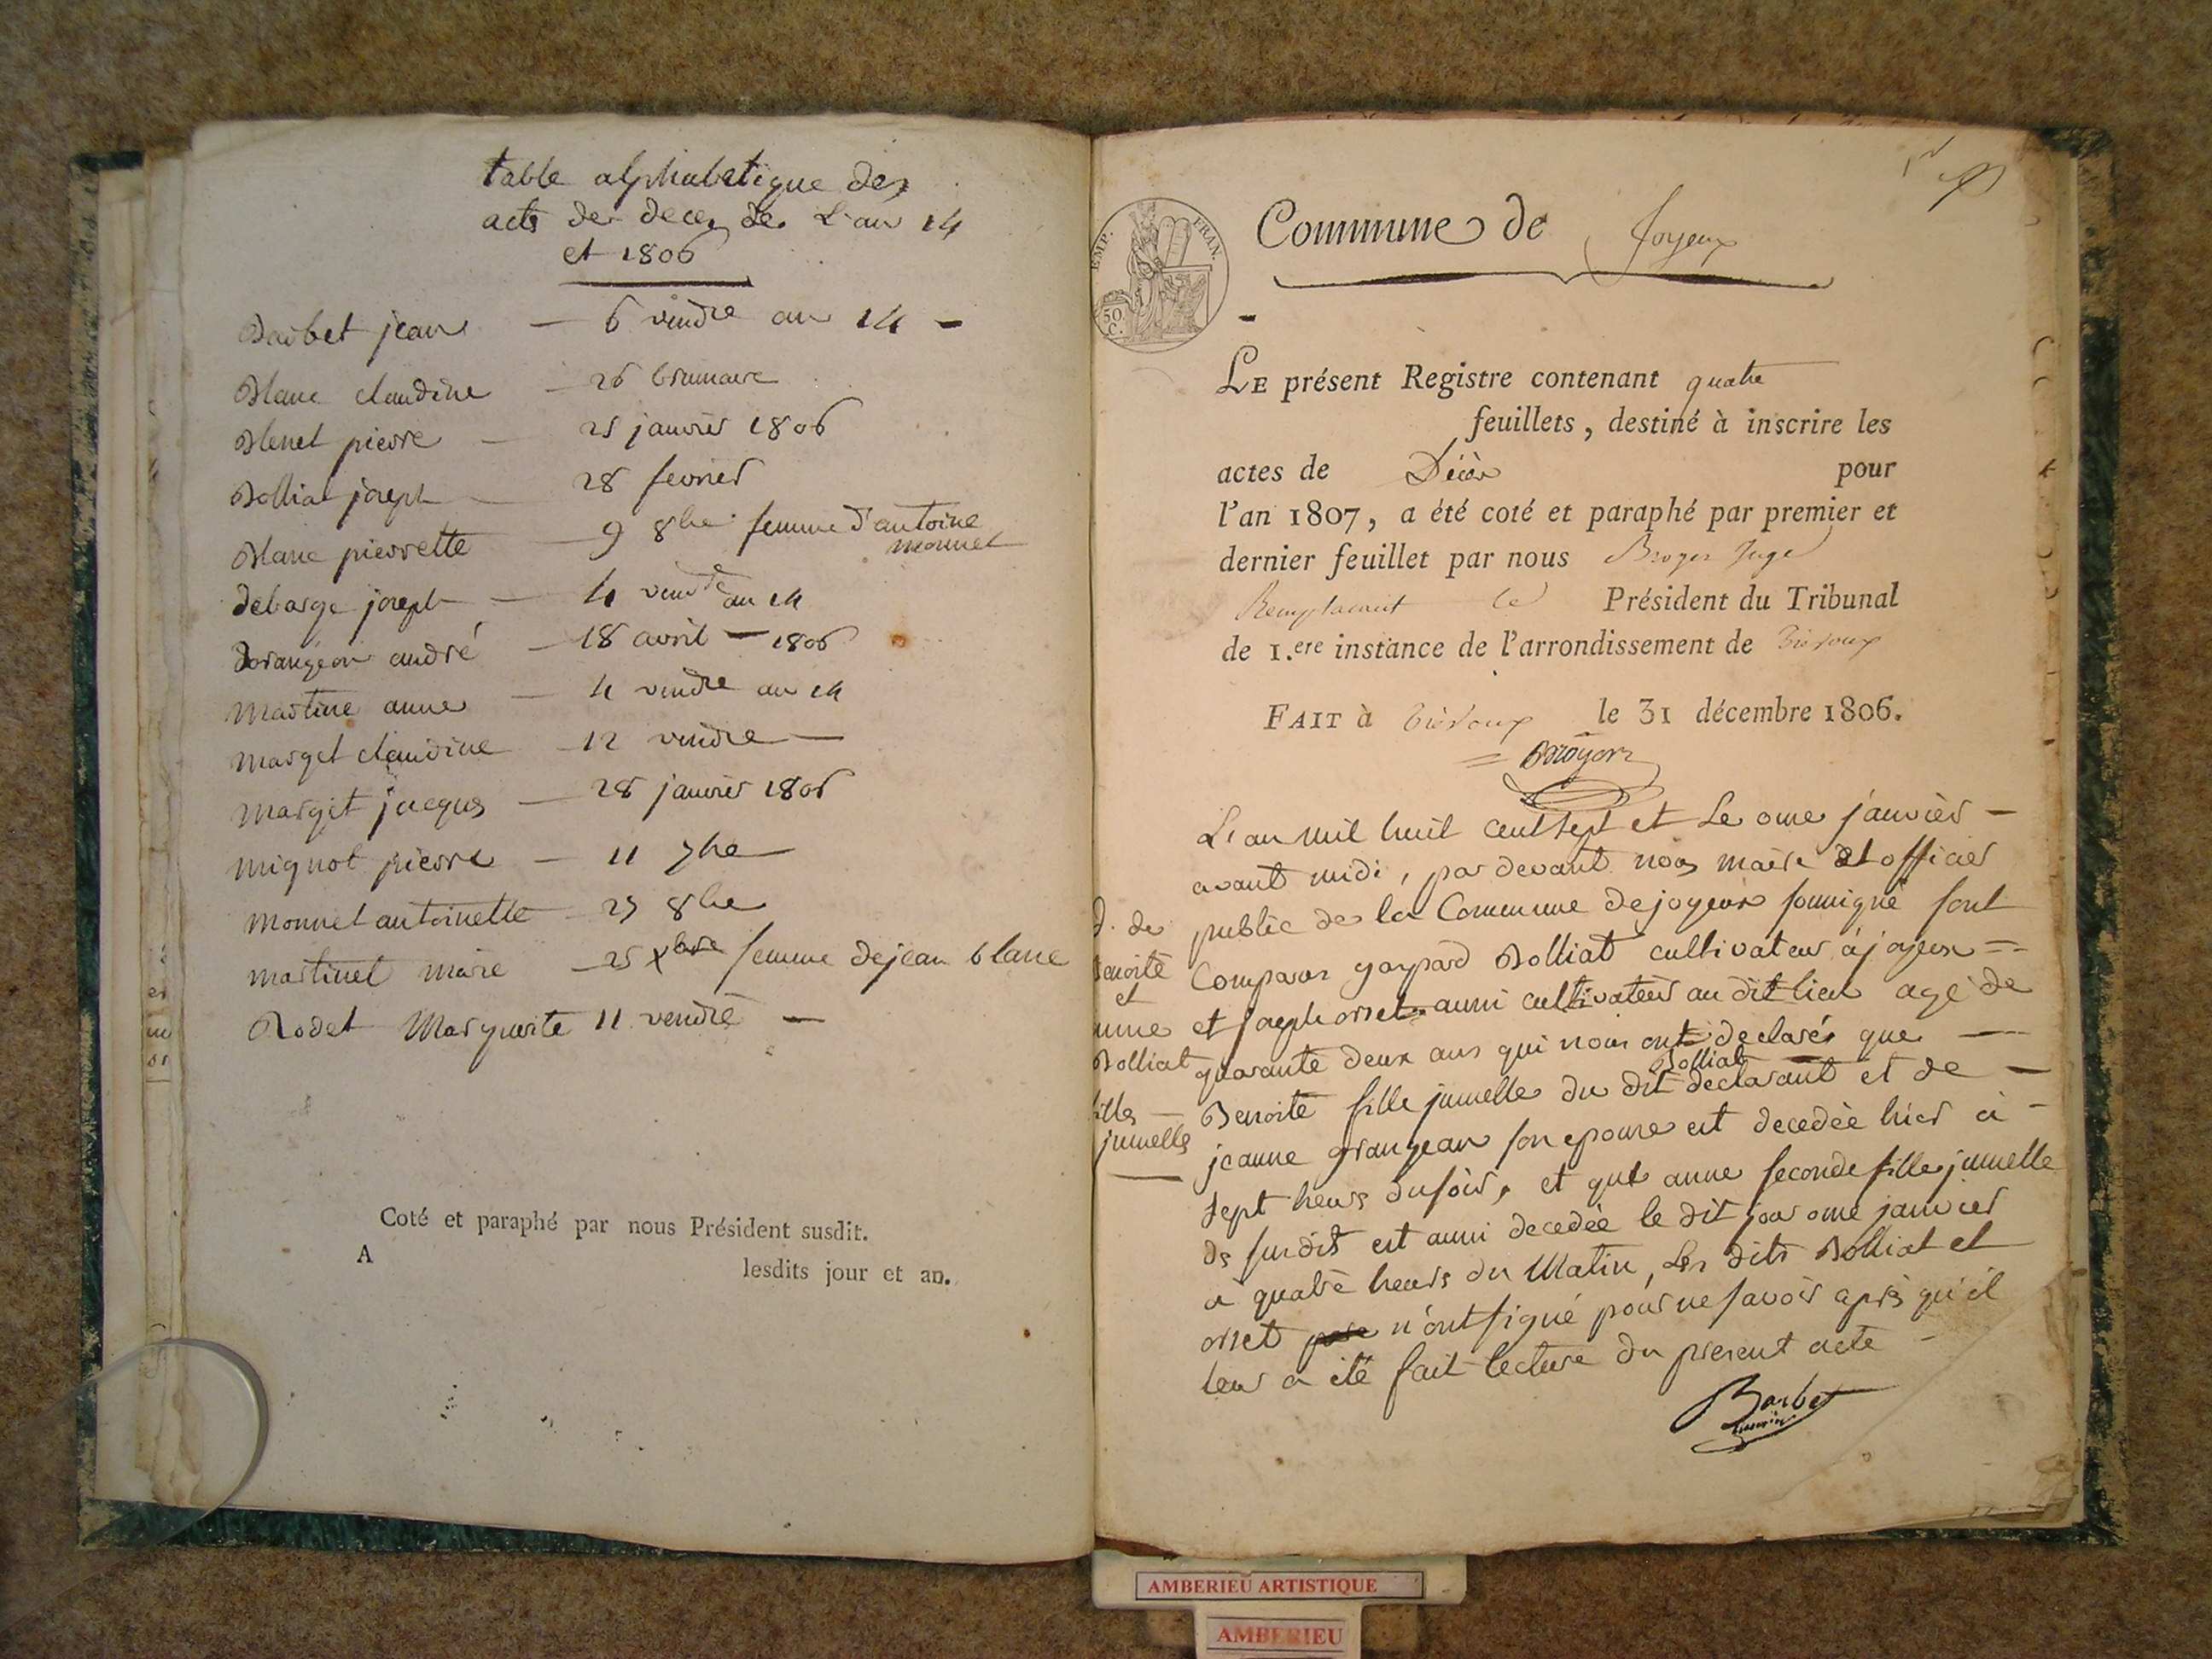 table alphabetique des
acts de deces de L'an 14
et 1806
Barbet jean — 6 vendre an 14 —
Blanc claudine — 26 brumaire
Blenet pierre — 25 janvier 1806
Bolliat joseph — 28 fevrier
Blanc pierrette — 9 8bre femme d'antoine
monnet
debarge joseph — 4 vendre an 14
dorangeon andré — 18 avril — 1806
Martine anne — 4 vendre an 14
marget claudine — 12 vendre —
marget jacques — 28 janvier 1806
mignot pierre — 11 7bre
monnet antoinette 25 8bre
martinet marie — 25 Xbre femme de jean blanc
Rodet Marguerite 11 vendre —
Coté et paraphé par nous Président susdit.
A lesdits jour et an.
EMP. FRAN.
50.
C.
Commune de Joyeux
LE présent Registre contenant quatre
feuillets, destiné à inscrire les
actes de Décès pour
l'an 1807, a été coté et paraphé par premier et
dernier feuillet par nous Broyer Juge
Remplacant le Président du Tribunal
de 1.ere instance de l'arrondissement de Trévoux
FAIT à Trévoux le 31 décembre 1806.
L'an mil huit cent sept et le onze janvier —
avant midi, par devant nous maire et officier
public de la Commune de joyeux soussigné sont
Comparus gaspard Bolliat cultivateur à joyeux =
et joseph orset aussi cultivateur au dit lieu agé de
quarante deux ans qui nous ont declarés que —
Bolliat
Benoite fille jumelle du dit declarant et de —
jeanne grangean son epouse est decedée hier à —
sept heurs du soir, et que anne seconde fille jumelle
ds susdits est aussi decedée le dit jour onze janvier
a quatre heurs du Matin, Les dits Bolliat et
orset n'ont signé pour ne savoir après qu'il
leur a été fait lecture du present acte —
d. de
Benoite
et
anne
Bolliat
filles —
jumelles
Barbet
AMBERIEU ARTISTIQUE
AMBERIEU